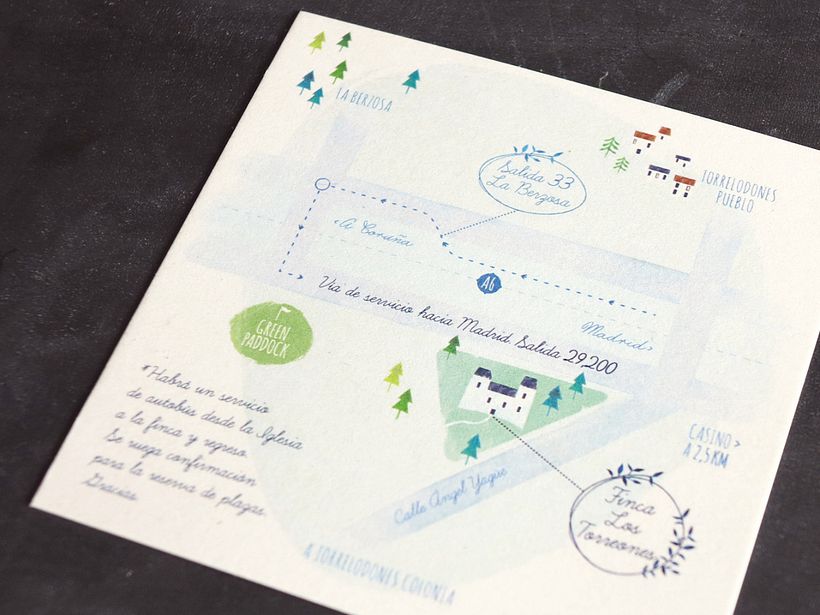 LA BERZOSA
Salida 33
La Berzosa
TORRELODONES
PUEBLO
<A Coruña
A6
Madrid>
Vía de servicio hacia Madrid. Salida 29,200
GREEN
PADDOCK
*Habrá un servicio
de autobús desde la Iglesia
a la finca y regreso.
Se ruega confirmación
para la reserva de plazas.
Gracias
CASINO>
A 2,5 KM
Calle Ángel Yagüe
Finca
Los
Torreones
A TORRELODONES COLONIA